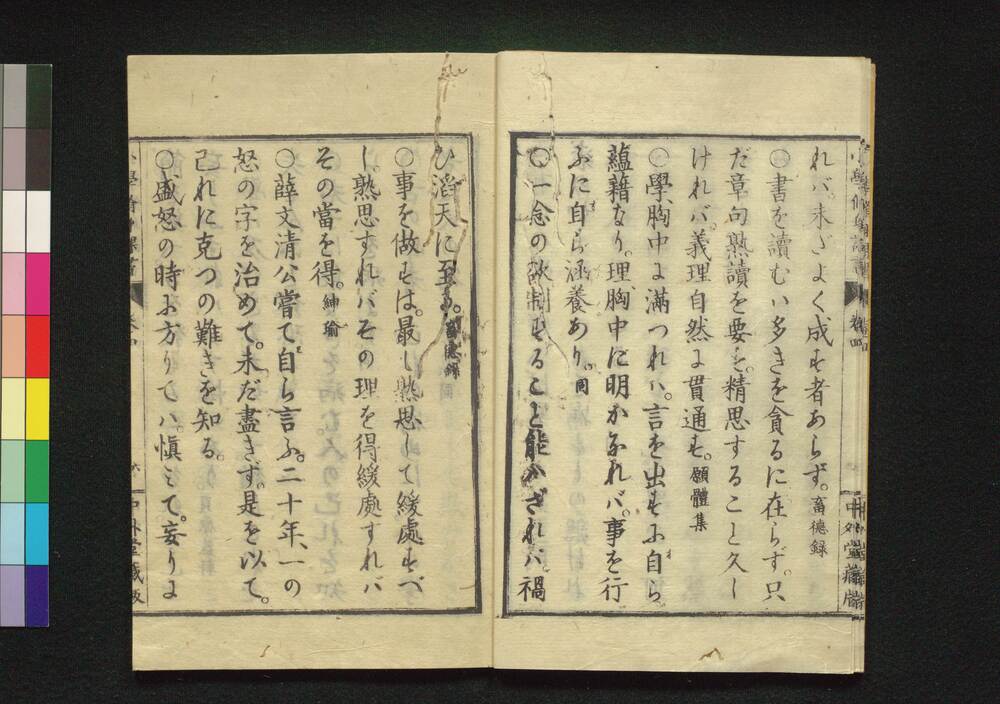 れバ、未ダよく成す者あらず。畜德録
〇書を讀むハ多きを貪るに在らず。只
だ章句熟讀を要す。精思すること久し
けれバ。義理自然ニ貫通す。願體集
〇學、胸中ニ滿つれハ。言を出すに自ら
蘊藉なり。理、胸中に明かなれバ。事を行
ふに自ら涵養あり。同
〇一念の欲制することと能ハざれバ。禍
ひ滔天に至る。畜德錄
〇事を做すは。最も熟思して緩處すべ
し。熟思すれバその理を得緩處すれバ
その當を得。紳瑜
〇薛文清公嘗て自ら言ふ。二十年、一の
怒の字を治めて。未だ盡きず。是を以て。
己れに克つの難きを知る。
〇盛怒の時に方りてハ。愼ミて。妄りに
中外堂藏版